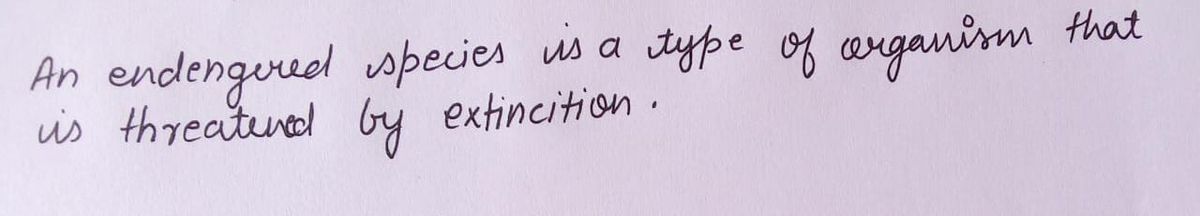 An endengered species is a type of organism that
is threatened by extincition.